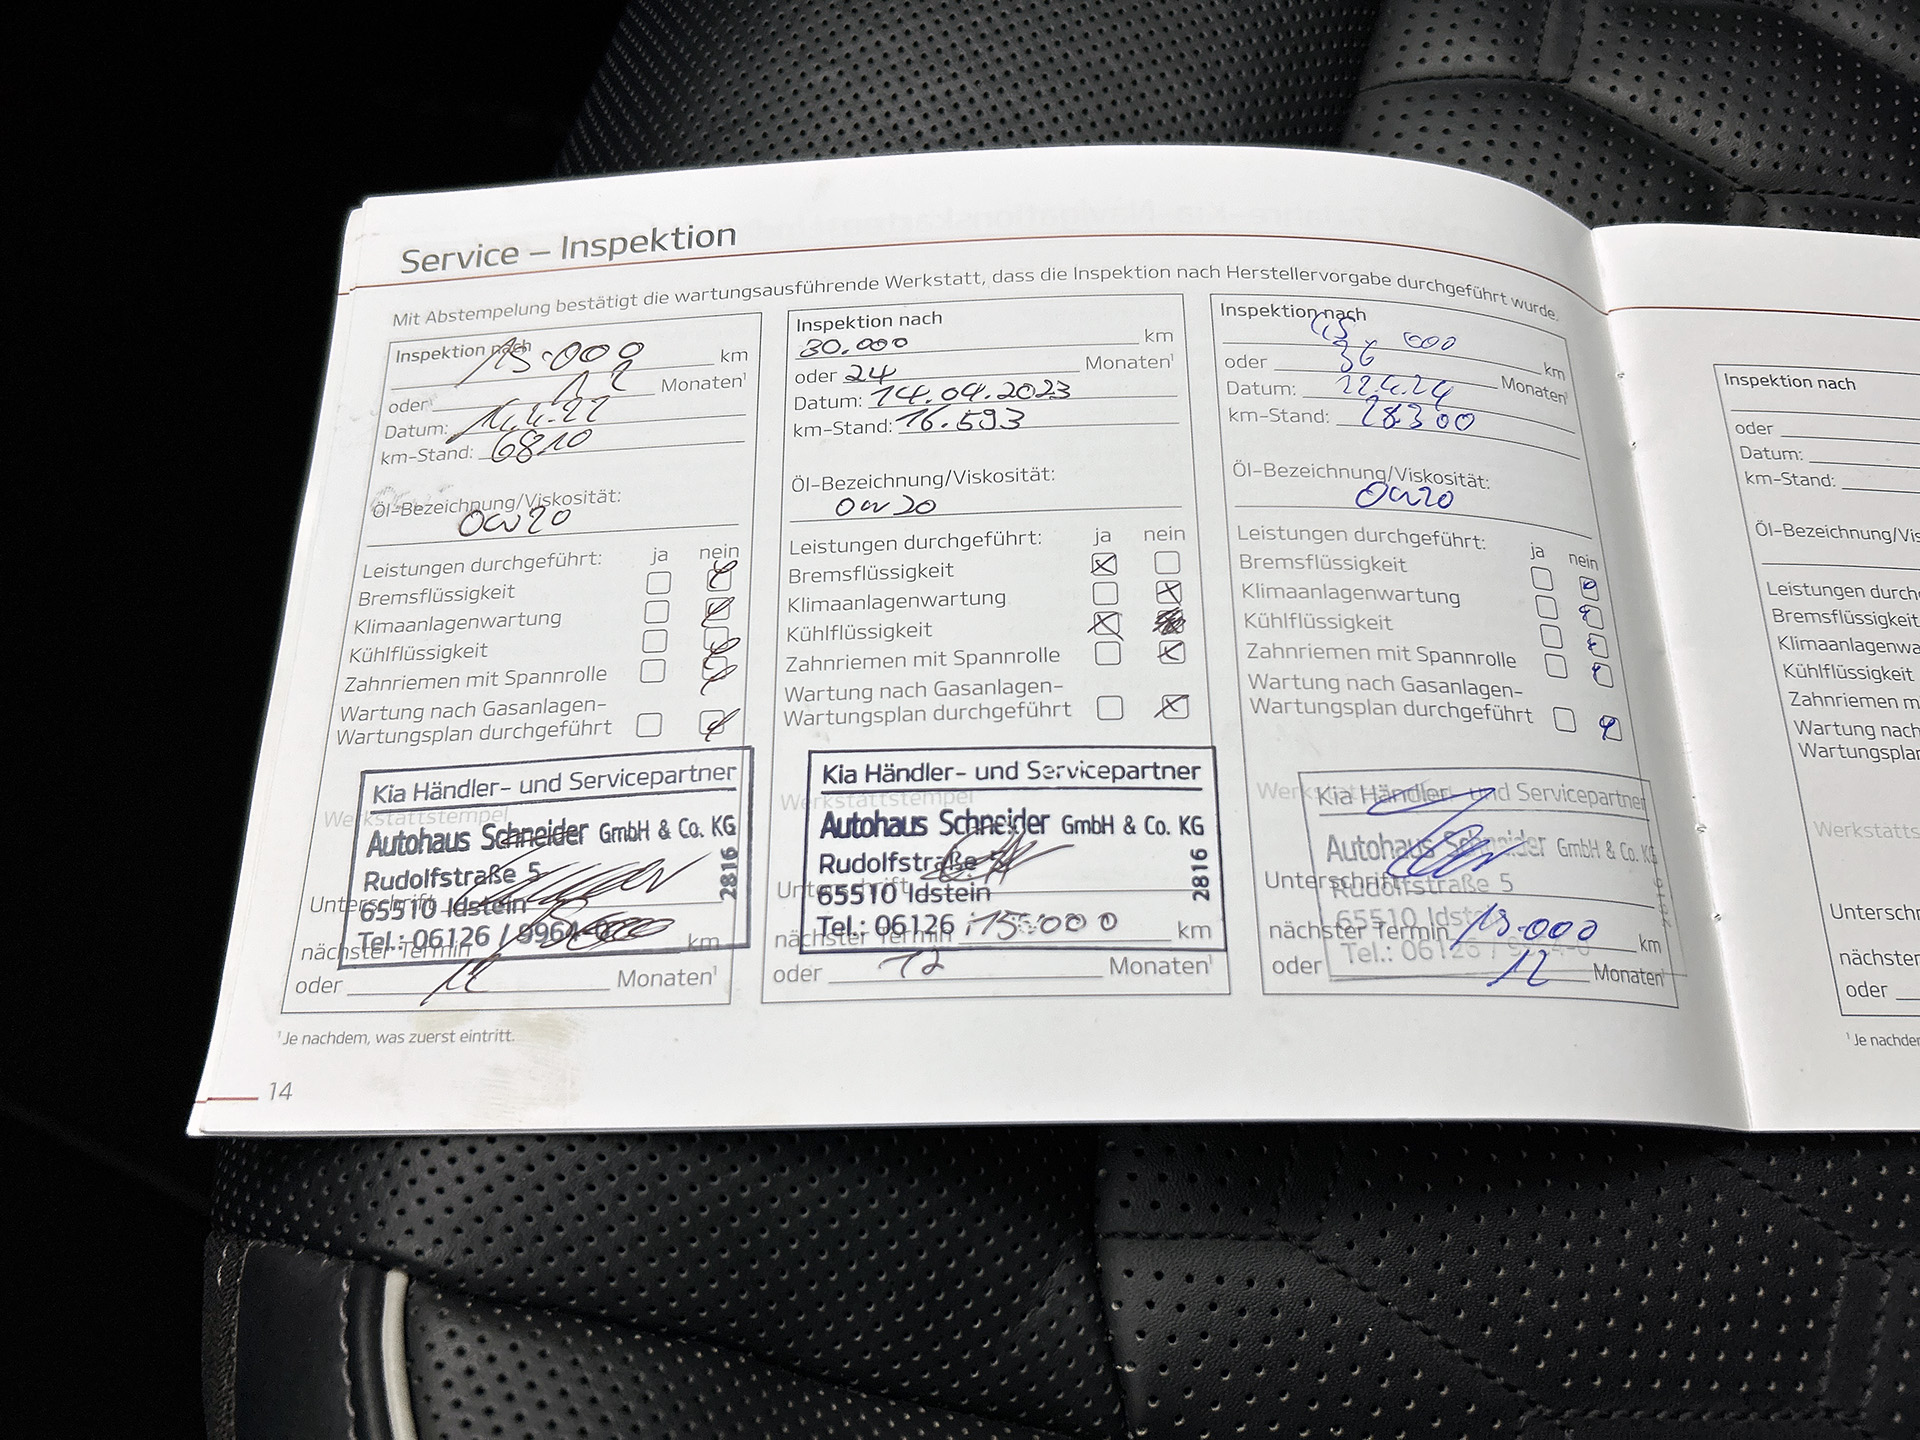 Service – Inspektion
Mit Abstempelung bestätigt die wartungsausführende Werkstatt, dass die Inspektion nach Herstellervorgabe durchgeführt wurde.
Inspektion nach
15.000 km
oder 12 Monaten¹
Datum:
km-Stand: 6810
Öl-Bezeichnung/Viskosität:
0w20
Leistungen durchgeführt: ja nein
Bremsflüssigkeit
Klimaanlagenwartung
Kühlflüssigkeit
Zahnriemen mit Spannrolle
Wartung nach Gasanlagen-
Wartungsplan durchgeführt
Werkstattstempel
Kia Händler- und Servicepartner
Autohaus Schneider GmbH & Co. KG
Rudolfstraße 5
65510 Idstein
Tel.: 06126 / 9964-0
2816
Unterschrift
nächster Termin km
oder 12 Monaten¹
Inspektion nach
30.000 km
oder 24 Monaten¹
Datum: 14.04.2023
km-Stand: 16.593
Öl-Bezeichnung/Viskosität:
0w20
Leistungen durchgeführt: ja nein
Bremsflüssigkeit
Klimaanlagenwartung
Kühlflüssigkeit
Zahnriemen mit Spannrolle
Wartung nach Gasanlagen-
Wartungsplan durchgeführt
Werkstattstempel
Kia Händler- und Servicepartner
Autohaus Schneider GmbH & Co. KG
Rudolfstraße
65510 Idstein
Tel.: 06126
2816
Unterschrift
nächster Termin 15.000 km
oder 12 Monaten¹
Inspektion nach
45.000 km
oder 36 Monaten¹
Datum: 22.4.24
km-Stand: 28300
Öl-Bezeichnung/Viskosität:
0w20
Leistungen durchgeführt: ja nein
Bremsflüssigkeit
Klimaanlagenwartung
Kühlflüssigkeit
Zahnriemen mit Spannrolle
Wartung nach Gasanlagen-
Wartungsplan durchgeführt
Kia Händler- und Servicepartner
Autohaus Schneider GmbH & Co. KG
Rudolfstraße 5
65510 Idstein
Tel.: 06126
Unterschrift
nächster Termin 15.000 km
oder 12 Monaten¹
¹Je nachdem, was zuerst eintritt.
14
Inspektion nach
oder
Datum:
km-Stand:
Öl-Bezeichnung/Vis
Leistungen durchg
Bremsflüssigkeit
Klimaanlagenwa
Kühlflüssigkeit
Zahnriemen m
Wartung nach
Wartungsplan
Werkstatts
Unterschr
nächster
oder
¹Je nachde